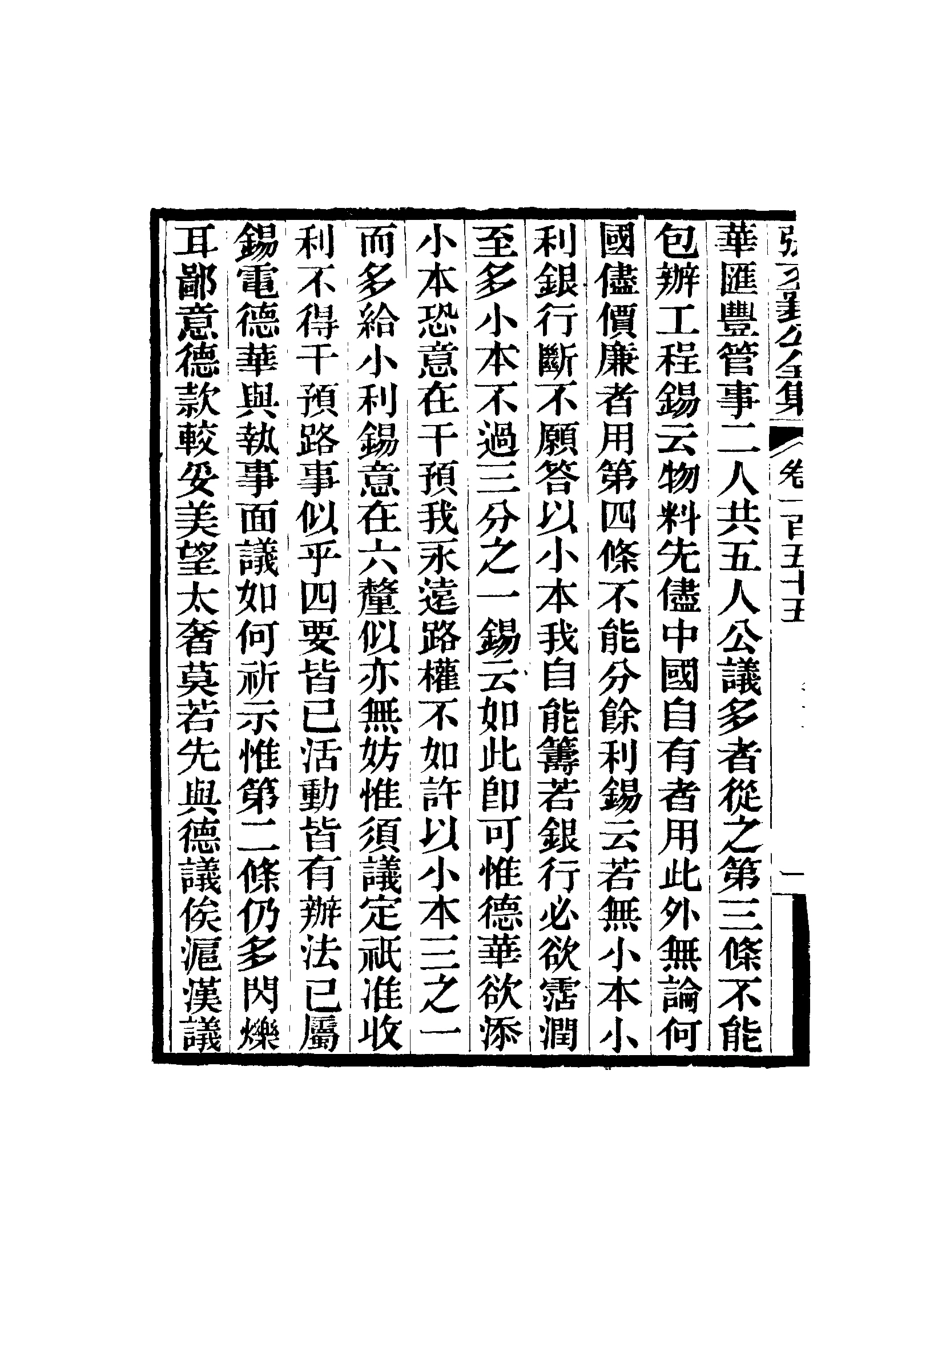 張文襄公全集 卷一百五十五 一
華匯豐管事二人共五人公議多者從之第三條不能
包辦工程錫云物料先儘中國自有者用此外無論何
國儘價廉者用第四條不能分餘利錫云若無小本小
利銀行斷不願答以小本我自能籌若銀行必欲霑潤
至多小本不過三分之一錫云如此即可惟德華欲添
小本恐意在干預我永遠路權不如許以小本三之一
而多給小利錫意在六釐似亦無妨惟須議定祇准收
利不得干預路事似乎四要皆已活動皆有辦法已屬
錫電德華與執事面議如何祈示惟第二條仍多閃爍
耳鄙意德款較妥美望太奢莫若先與德議俟滬漢議